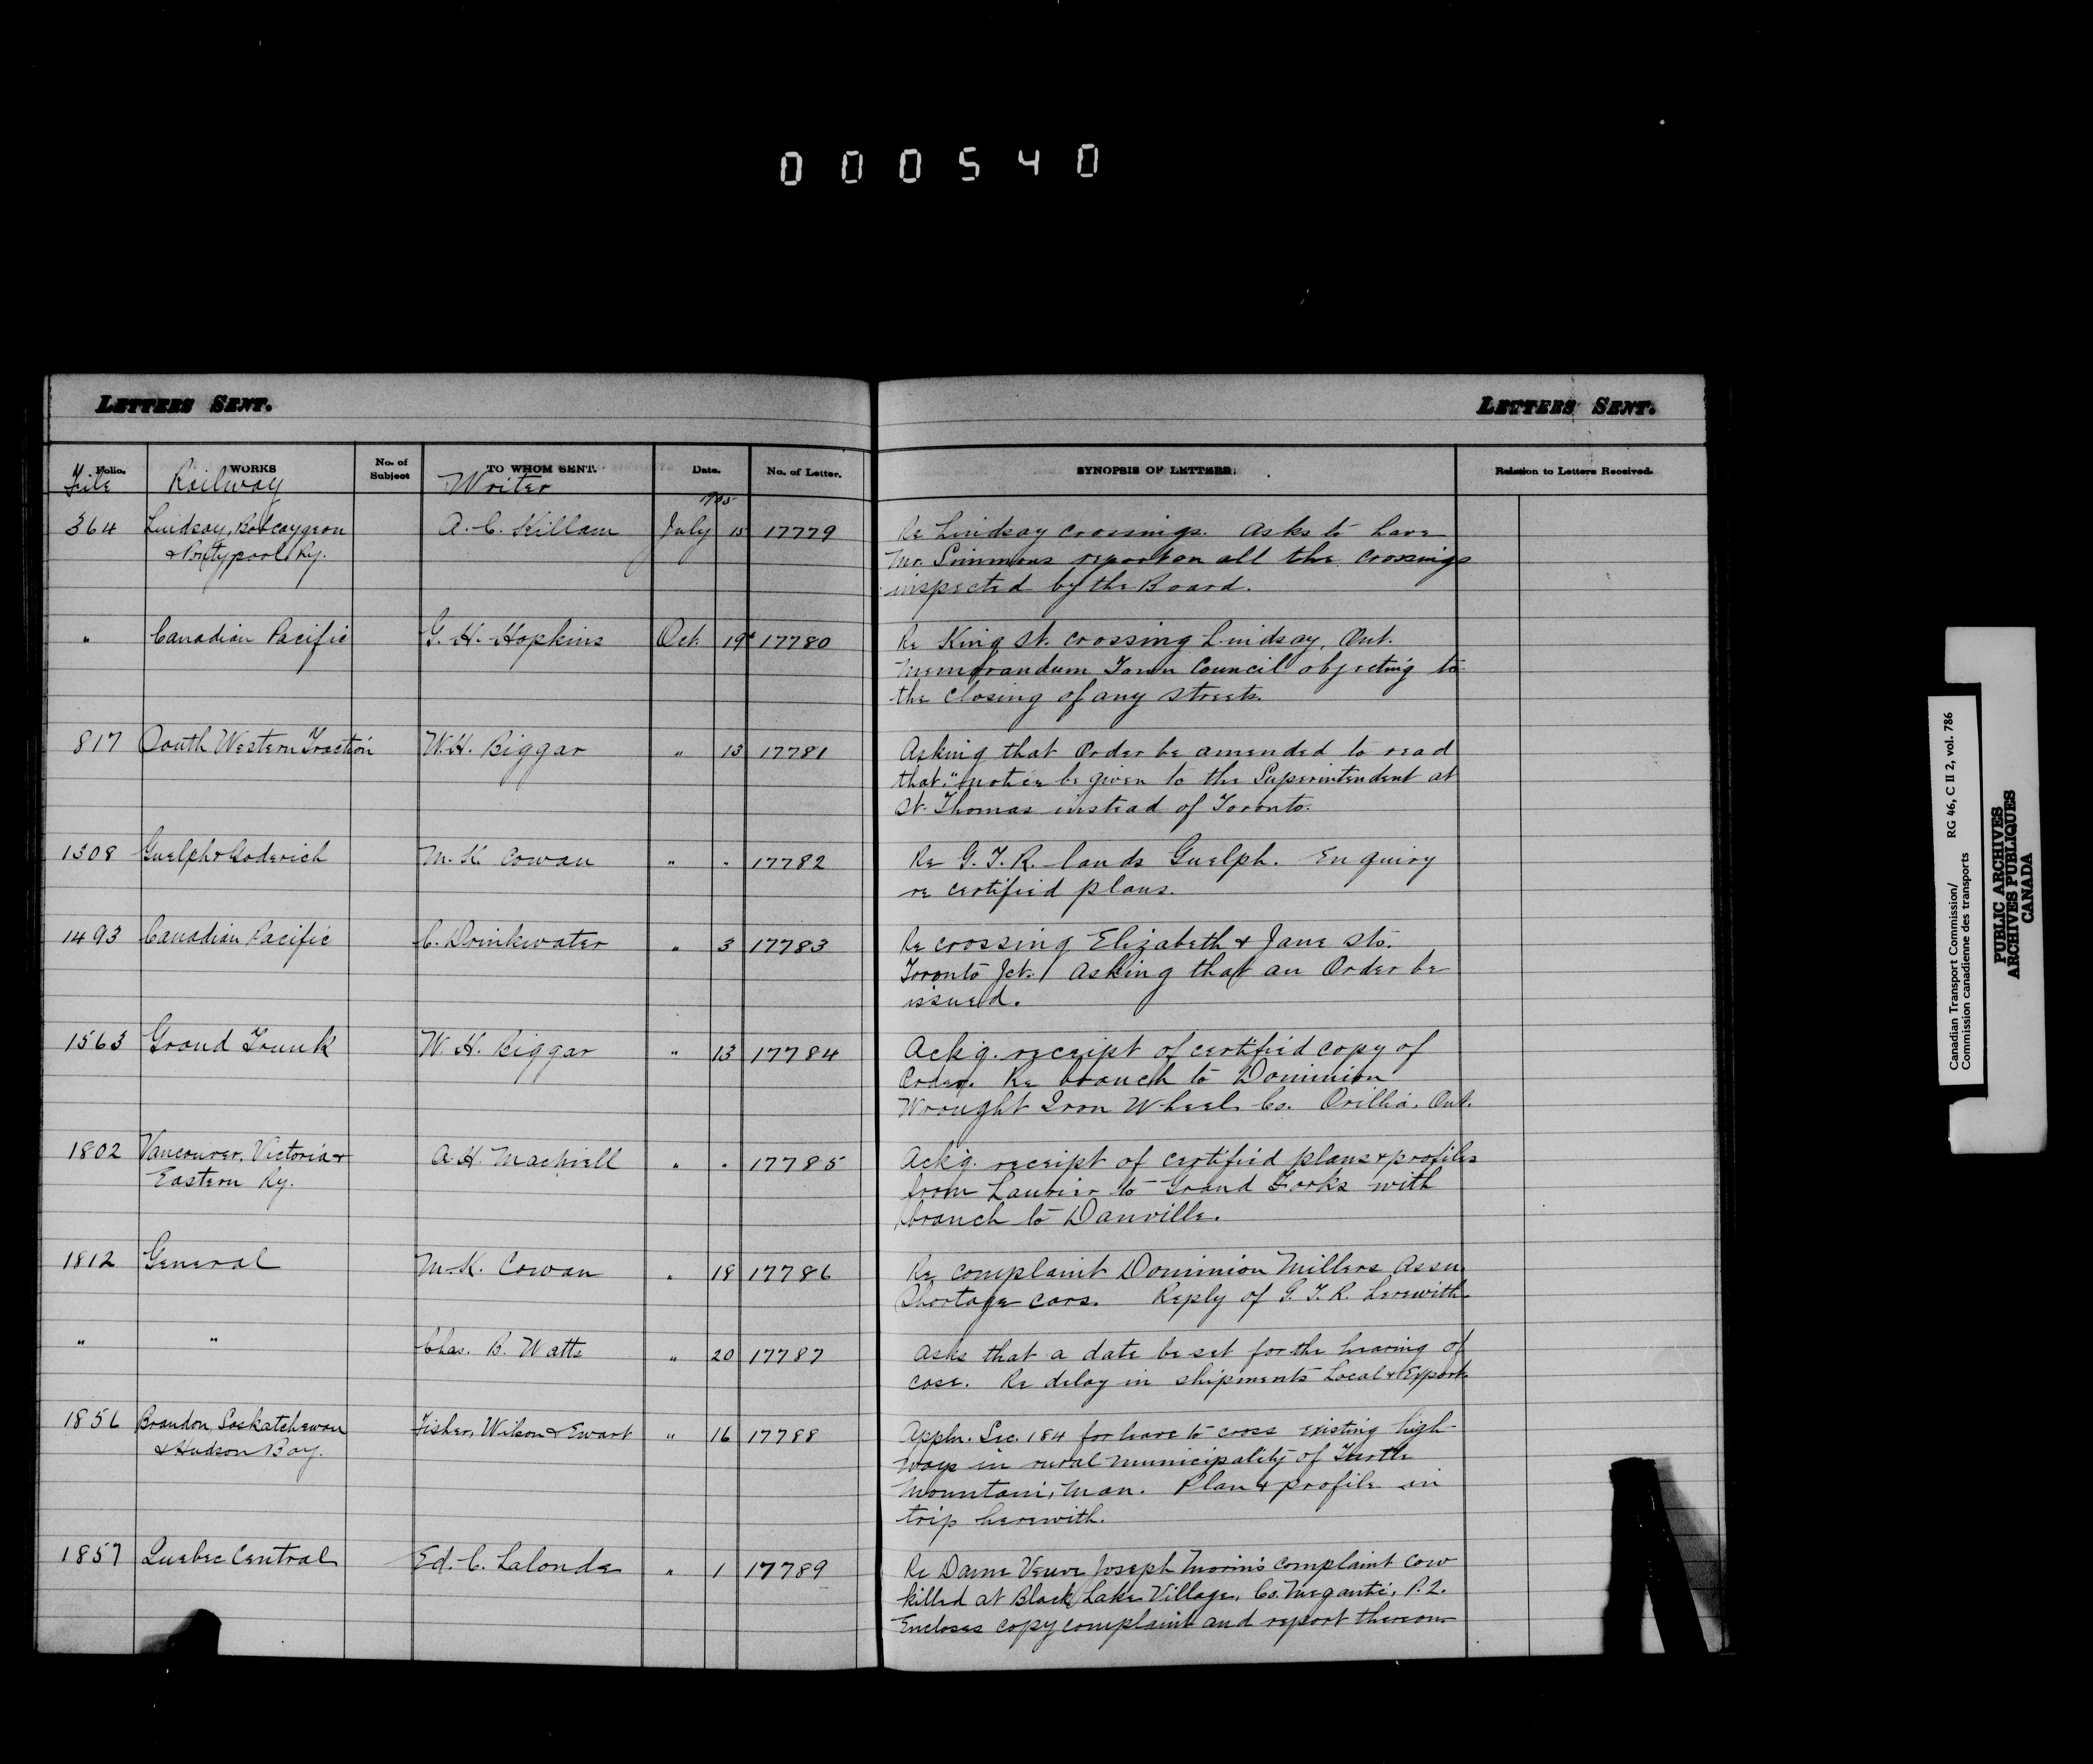 000540
LETTERS SENT.
LETTERS SENT.
Folio. WORKS No. of Subject TO WHOM SENT. Date. No. of Letter. SYNOPSIS OF LETTERS. Relation to Letters Received.
File Railway Writer
1905
364 Lindsay, Bobcaygeon A. C. Killam July 15 17779 Re Lindsay crossings. Asks to have
& Pontypool Ry. Mr. Simmons report on all the crossings
inspected by the Board.
" Canadian Pacific G. H. Hopkins Oct. 19 17780 Re King St. crossing Lindsay, Ont.
Memorandum Town Council objecting to
the closing of any streets
817 South Western Traction W. H. Biggar " 13 17781 Asking that Order be amended to read
that "notice be given to the Superintendent at
St. Thomas instead of Toronto.
1308 Guelph & Goderich M. K. Cowan " " 17782 Re G. T. R. lands Guelph. Enquiry
re certified plans.
1493 Canadian Pacific C. Drinkwater " 3 17783 Re crossing Elizabeth & Jane Sts.
Toronto Jct. Asking that an Order be
issued.
1563 Grand Trunk W. H. Biggar " 13 17784 Ackg. receipt of certified copy of
Order. Re branch to Dominion
Wrought Iron Wheel Co. Orillia, Ont.
1802 Vancouver, Victoria & A. H. MacNeill " " 17785 Ackg. receipt of certified plans & profiles
Eastern Ry. from Laurier to Grand Forks with
branch to Danville.
1812 General M. K. Cowan " 18 17786 Re complaint Dominion Millers Assn
Shortage cars. Reply of G. T. R. herewith.
" " Chas. B. Watts " 20 17787 Asks that a date be set for the hearing of
case. Re delay in shipments Local & Export.
1856 Brandon, Saskatchewan Fisher, Wilson & Ewart " 16 17788 Appln. Sec. 184 for leave to cross existing high
& Hudson Bay. ways in rural municipality of Turtle
Mountain, Man. Plan & profile in
trip herewith.
1857 Quebec Central Ed. C. Lalonde " 1 17789 Re Dame Veuve Joseph Morin's complaint cow
killed at Black Lake Village, Co. Megantic, P.Q.
Encloses copy complaint and report thereon
Canadian Transport Commission/ RG 46, C II 2, vol. 786
Commission canadienne des transports
PUBLIC ARCHIVES
ARCHIVES PUBLIQUES
CANADA